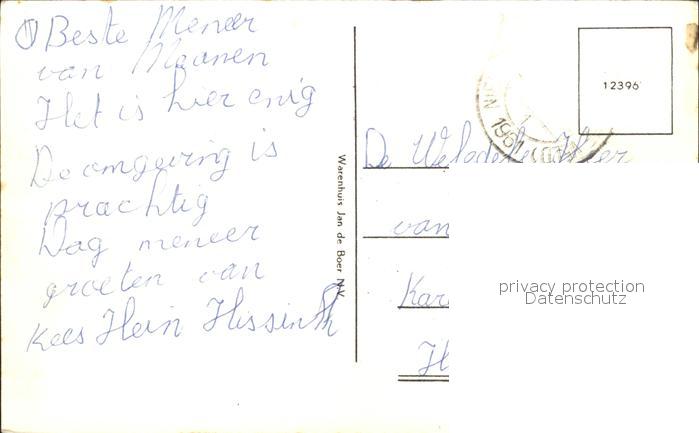 Beste Meneer
van Maanen
Het is hier enig
De omgeving is
prachtig
Dag meneer
groeten van
Kees Hein Hissink
Warenhuis Jan de Boer N.V.
12396
1961
De Weledele Heer
van
Kar
H
privacy protection
Datenschutz